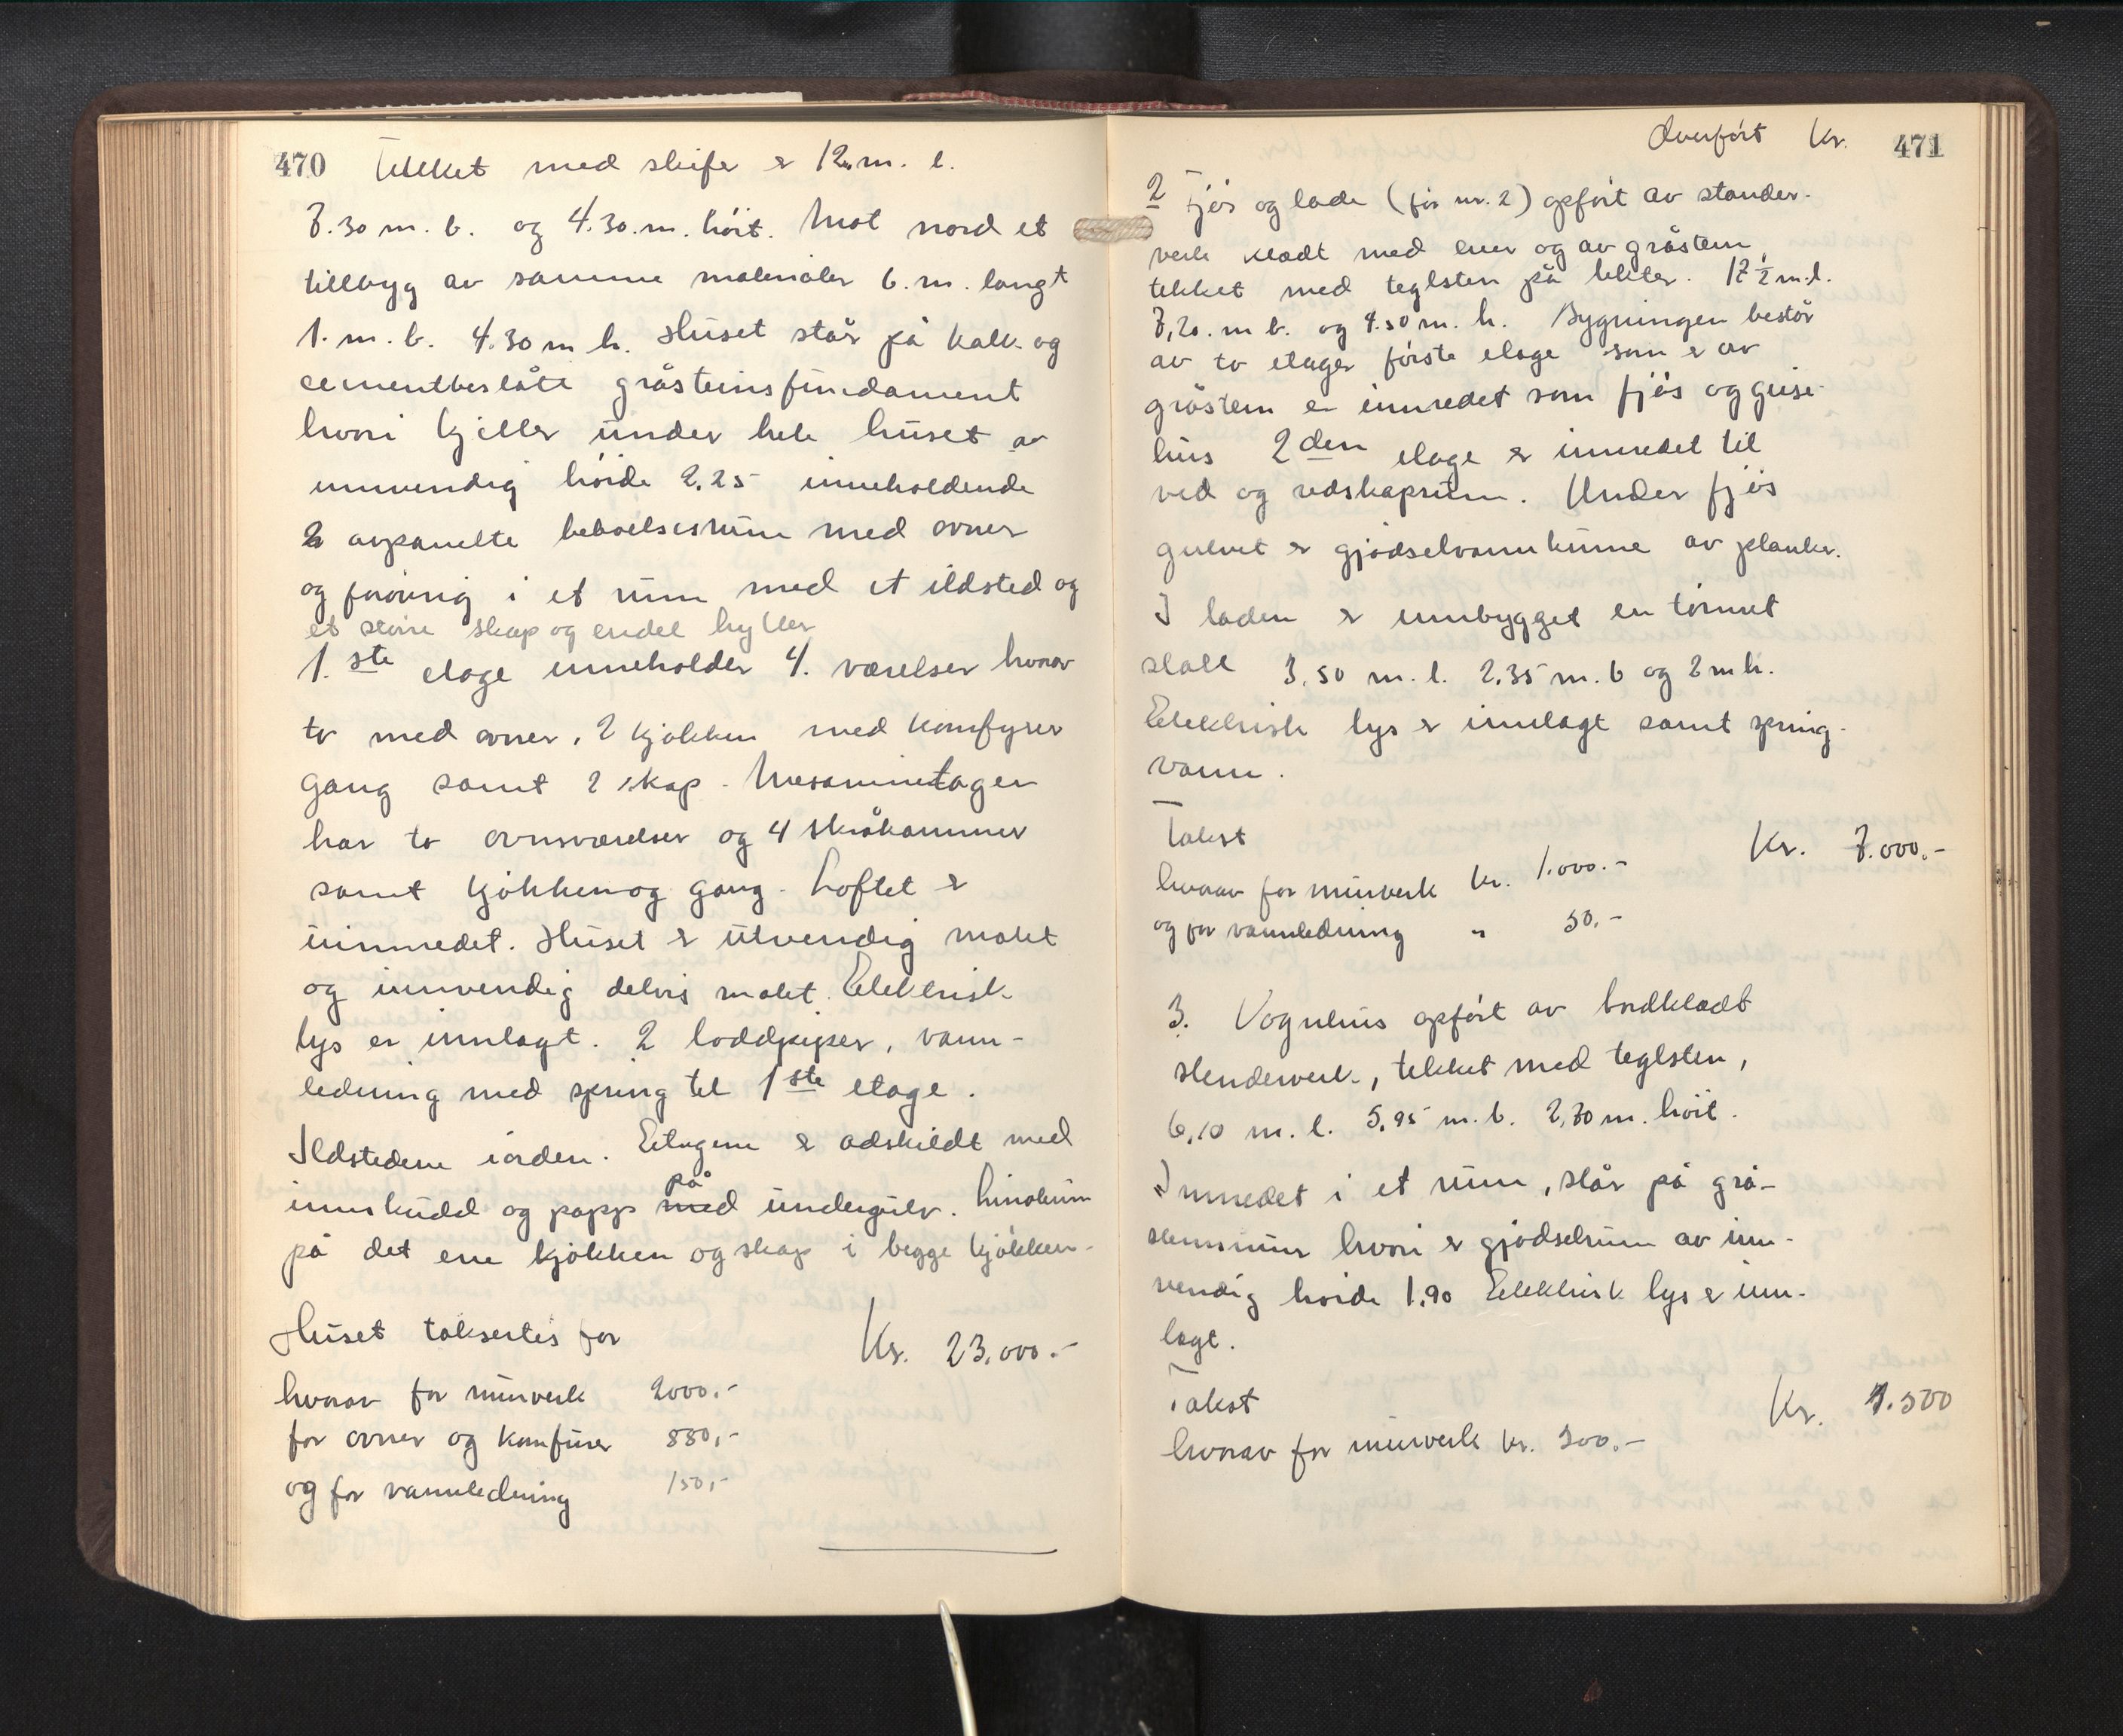 470
Tekket med skifer er 12 m. l.
7.30 m. b. og 4.30. m. höit. Mot nord et
tilbyg av samme materialer 6. m. langt
1. m. b. 4.30 m h. Huset står på kalk og
cementbeslåte gråsteinsfundament
hvori kjeller under hele huset av
innvendig höide 2.25 inneholdende
2 avpanelte beboelsesrum med ovner
og forövrig i et rum med et ildsted og
et större skap og endel hyller
1.ste etage inneholder 4. værelser hvorav
to med ovner, 2 kjökken med komfyrer
gang samt 2 skap. Mesaninetagen
har to ovnsværelser og 4 skråkammer
samt kjökken og gang. Loftet er
uinnredet. Huset er utvendig malet
og innvendig delvis malet. Elektrisk
lys er innlagt. 2 loddpiper, vann-
ledning med spring til 1ste etage.
Ildstedene iorden. Etagene er adskildt med
innskudd og papp med på undergulv. Linoleum
på det ene kjökken og skap i begge kjökken.
Huset taksertes for Kr. 23.000.-
hvorav for murverk 2000.-
for ovner og komfurer 880,-
og for vannledning 150,-
Överfört Kr. 471
2 Fjös og lade (för nr. 2) opfört av stender-
verk klædt med ener og av gråsten
tekket med teglsten på lekter. 12 1/2 m.l.
7,20. m b. og 4.50 m. h. Bygningen består
av to etager förste etage som er av
gråsten er innredet som fjös og grise-
hus 2den etage er innredet til
ved og redskapsrum. Under fjös
gulvet er gjödselvannkume av planker.
I laden er innbygget en tömret
stall 3,50 m. l. 2,35 m. b og 2 m h.
Elektrisk lys er innlagt samt spring-
vann.
Takst Kr. 7.000.-
hvorav for murverk kr. 1.000.-
og for vannledning " 50.-
3. Vognhus opfört av bordklædt
stenderverk, tekket med teglsten,
6,10 m. l. 5,95 m. b. 2,70 m. höit.
Innredet i et rum, står på grå-
stensmur hvori er gjödselrum av inn-
vendig höide 1,90 Elektrisk lys er inn-
lagt.
Takst Kr. 1.500
hvorav for murverk kr. 300.-